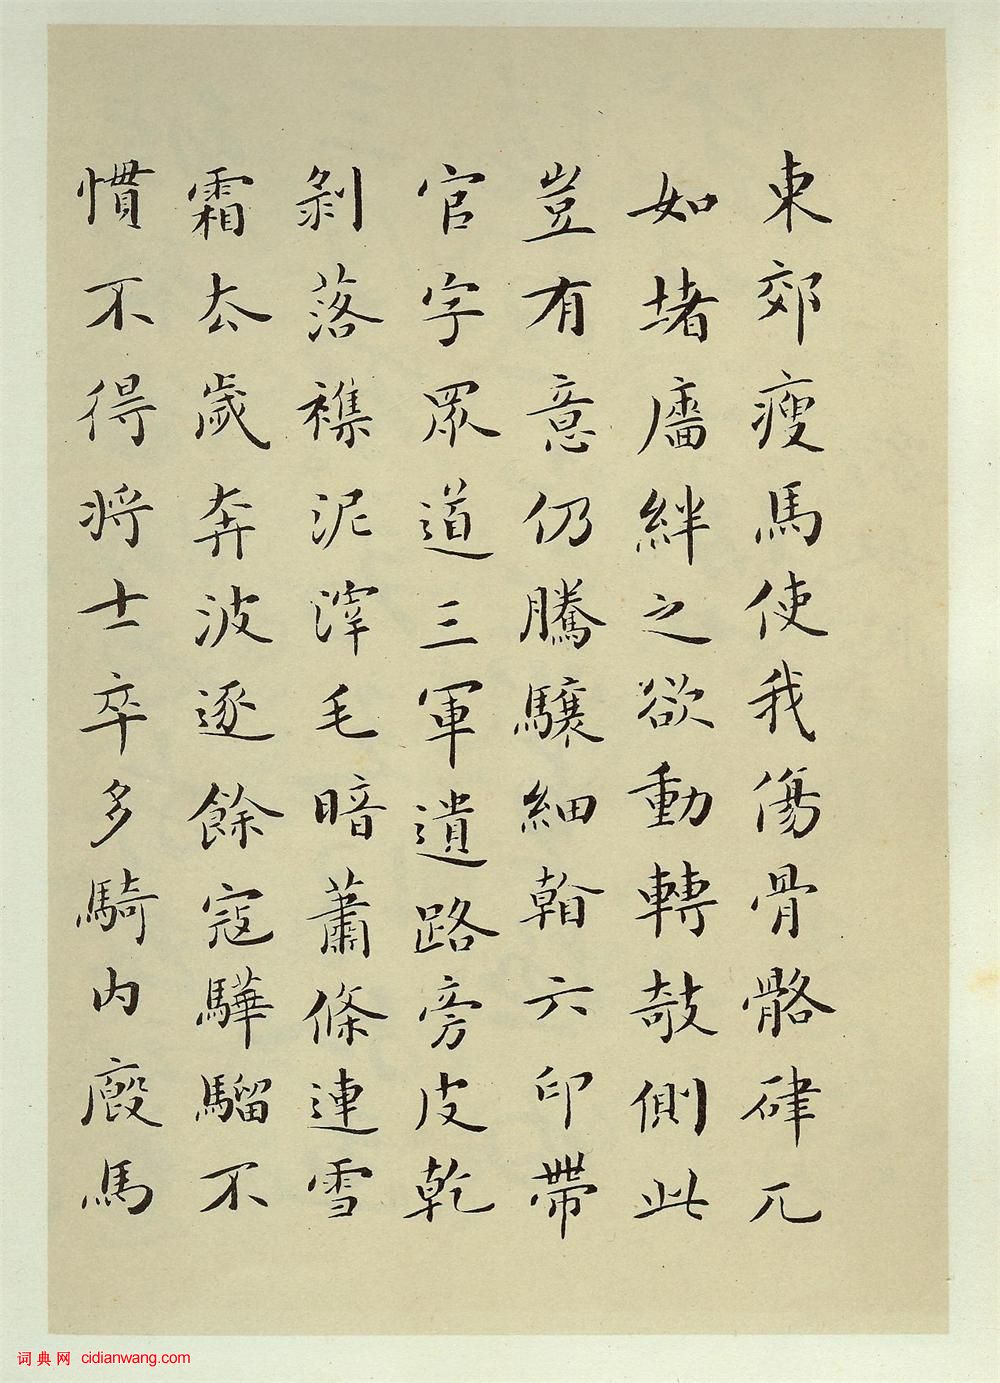 東郊瘦馬使我傷骨骼硉兀
如堵牆絆之欲動轉欹側此
豈有意仍騰驤細看六印帶
官字眾道三軍遺路旁皮乾
剝落雜泥滓毛暗蕭條連雪
霜去歲奔波逐餘寇驊騮不
慣不得將士卒多騎內廄馬
词典网 cidianwang.com